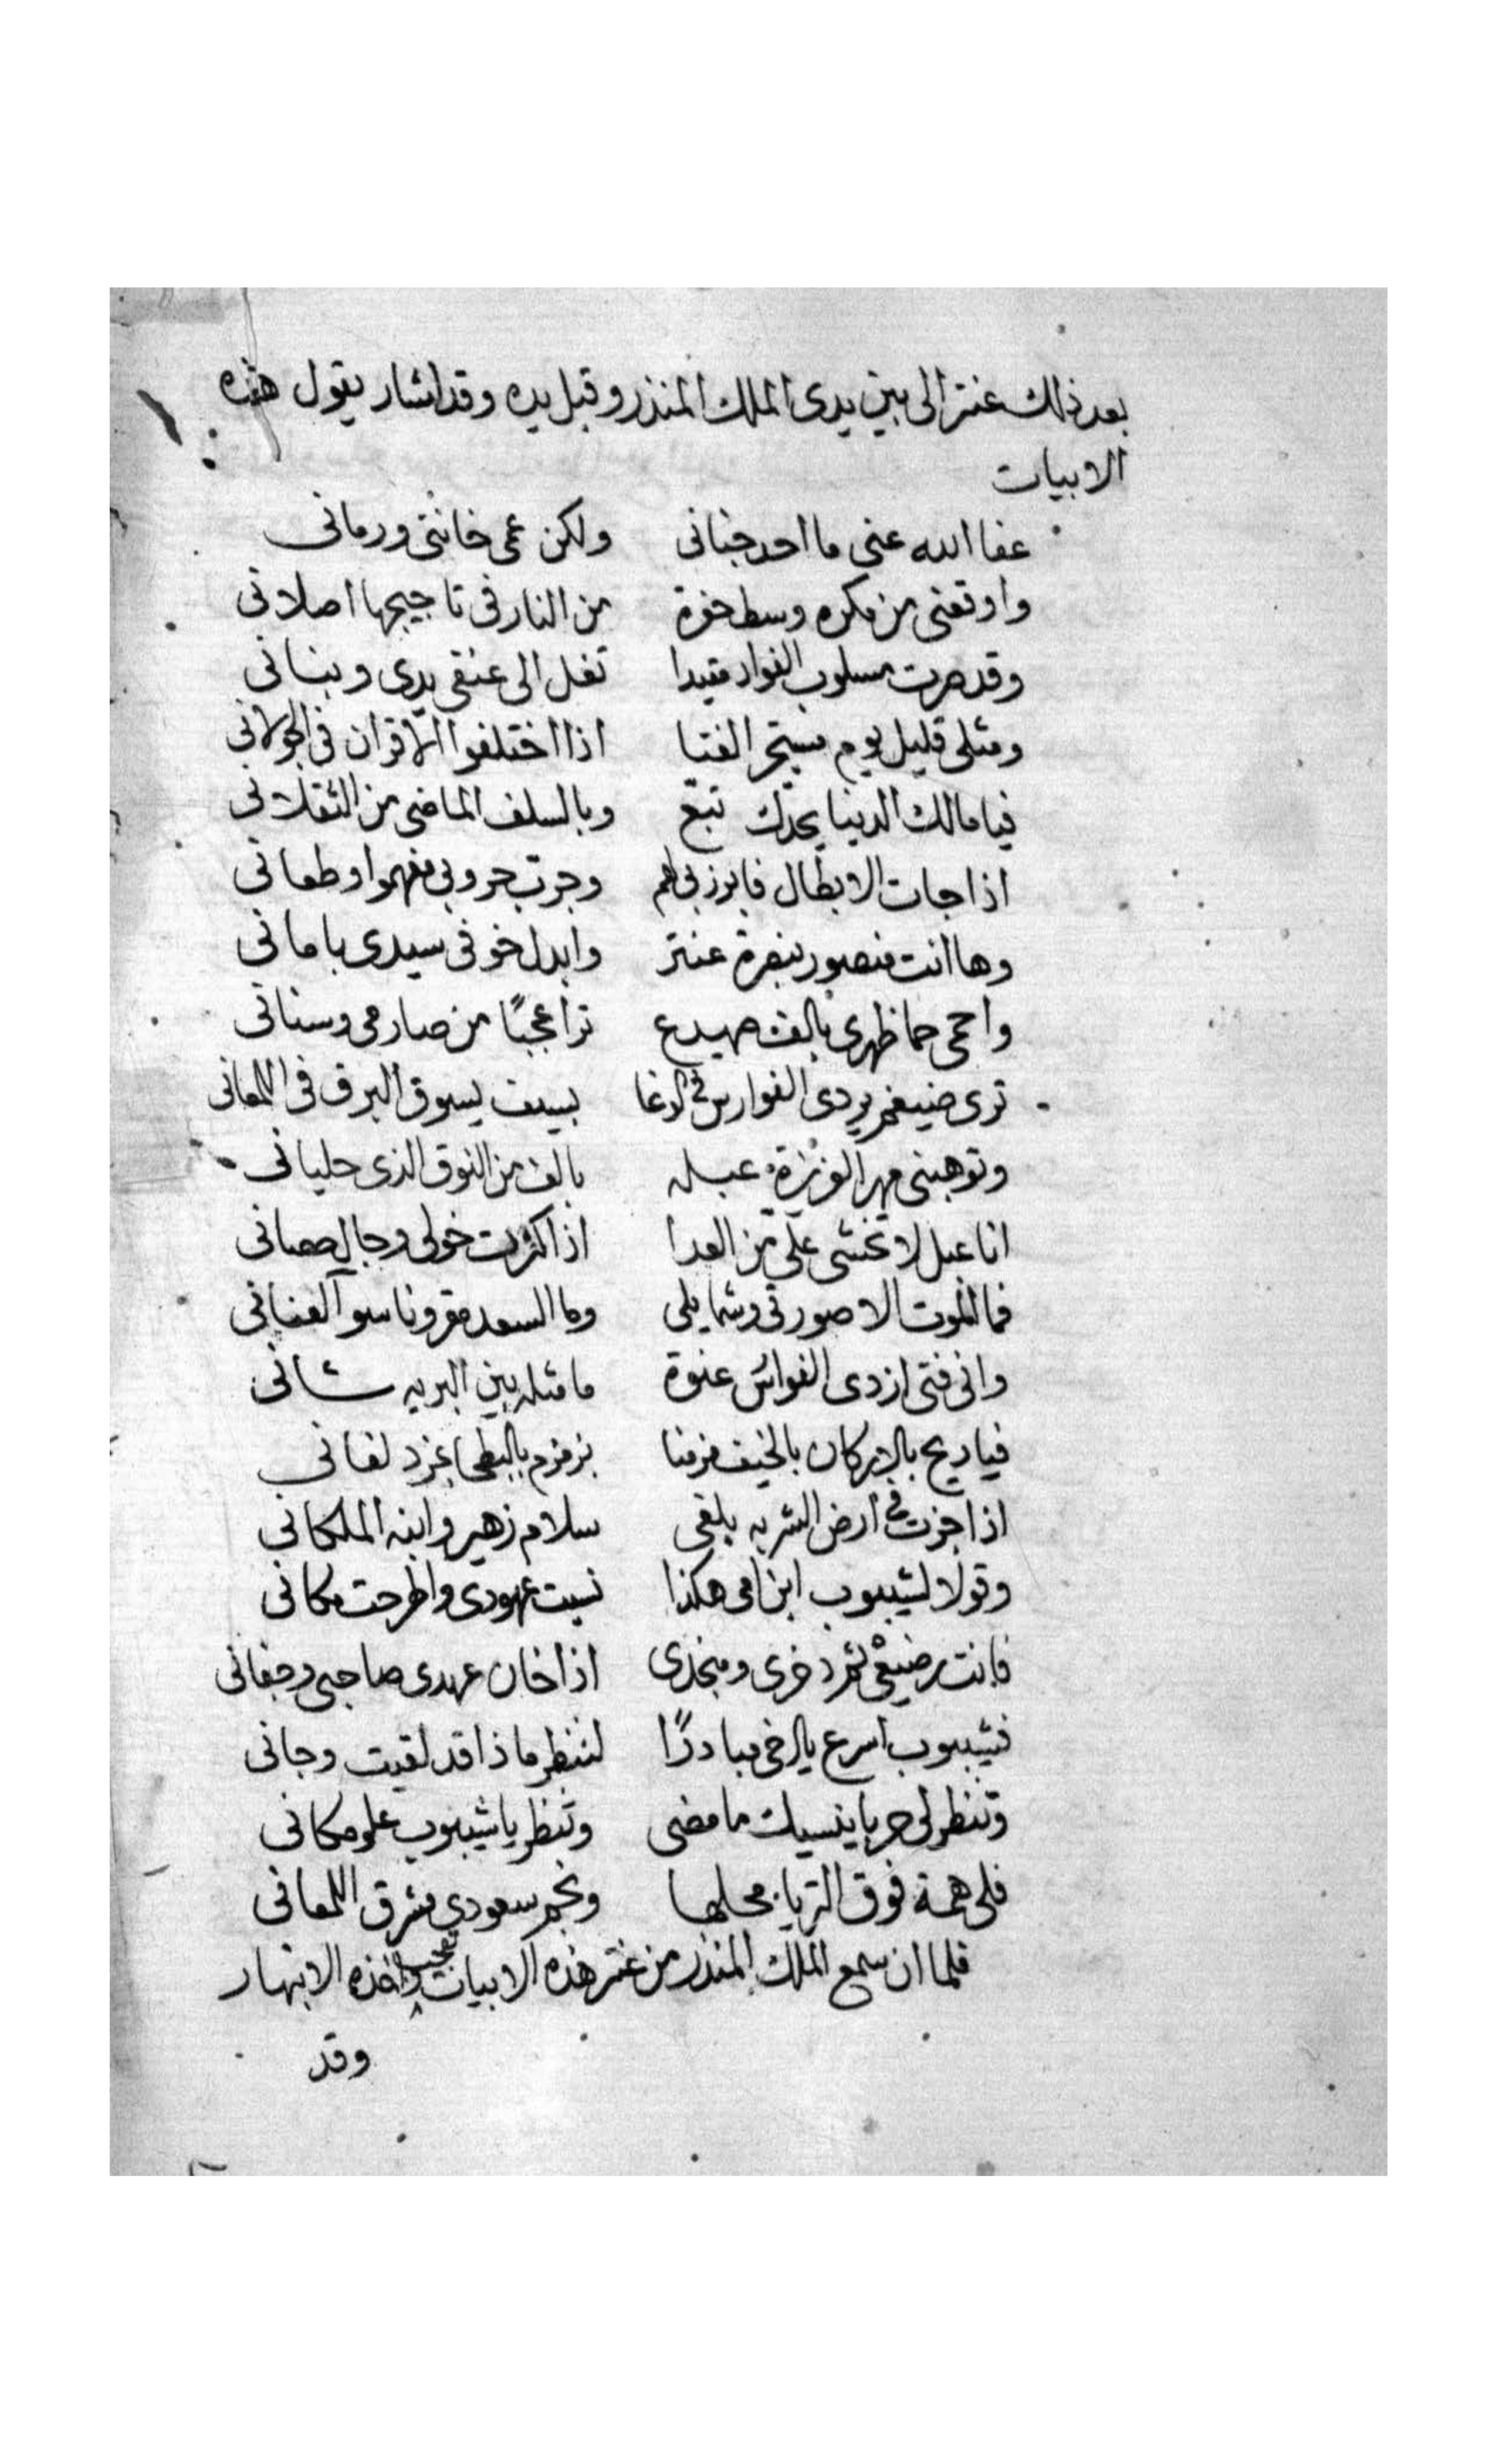 بعد ذلك عنتر الى بين يدى الملك المنذر وقبل يده وقد اشار يقول هذه
الابيات
عفا الله عنى ما احد جنانى ولكن عمى خاننى ورمانى
واوقعنى من مكره وسط حفرة من النار فى تاجيجها اصلانى
وقد صرت مسلوب الفواد مقيدا تغل الى عنقى يدى وبنانى
ومثلى قليل يوم الفتا اذا اختلفوا الاقران فى الجولانى
فيا مالك الدنيا بجدك تبع وبالسلف الماضى من الثقلانى
اذا جات الابطال فابرز بى لهم وجرب حروبى معهموا وطعانى
وها انت منصور بنصرة عنتر وابدل خوفى سيدى بامانى
واحمى حما ظهرى بالف صميدع ترا عجبًا من صارمى وسنانى
ترى ضيغم يردى الفوارس فى الوغا بسيف يسوق البرق فى اللمعانى
وتوهبنى مهر العزيزة عبله بالف من النوق الذى حليانى
انا عبل لا تخشى علي من العدا اذا كثرت خولى وجال حصانى
فما الموت الا صورتى وشمايلى وما السعد مقرونا سوا لعنانى
وانى فتى اردى الفوارس عنوة ما مثله بين البريه شانى
فيا ريح بالاركان بالخيف من منا بزمزم بالبطحا
اذا جزت فى ارض الشربه بلغى سلام زهير وابنه الملكانى
وقولا لشيبوب ابن امى هكذا نسيت عهودى واطرحت مكانى
فانت رضيعى ثم دخرى ومنجدى اذا خان عهدى صاحبى وجفانى
فشيبوب اسرع يا اخى مبادرًا لننظر ماذا قد لقيت وجانى
وتنظر لى حربا ينسيك ما مضى وتنظر يا شيبوب علو مكانى
فلى همة فوق الثريا محلها ونجم سعودى مشرق اللمعانى
فلما ان سمع الملك المنذر من عنتر هذه الابيات تعجب واخذه الانبهار
وقد